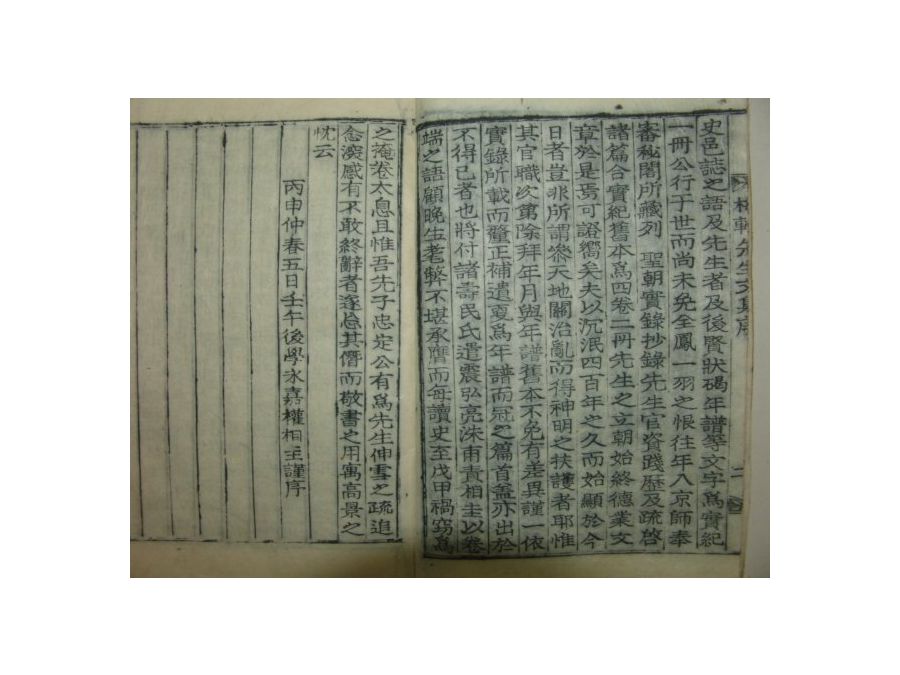 先生文集序
二
史邑誌之語及先生者及後賢狀碣年譜等文字爲實紀
一冊公行于世而尚未免全鳳一羽之恨往年入京師奉
審秘閣所藏列 聖朝實錄抄錄先生官資踐歷及疏啓
諸篇合實紀舊本爲四卷二冊先生之立朝始終德業文
章於是焉可證嚮矣夫以沉泯四百年之久而始顯於今
日者豈非所謂參天地關治亂而得神明之扶護者耶惟
其官職次第除拜年月與年譜舊本不免有差異謹一依
實錄所載而釐正補遺更爲年譜而冠之篇首盖亦出於
不得已者也將付諸壽民氏遣震弘亮洙甫責相圭以卷
端之語顧晚生耄弊不堪承膺而每讀史至戊甲禍窃爲
之掩卷太息且惟吾先子忠定公有爲先生伸雪之疏追
念淚感有不敢終辭者遂忘其僭而敬書之用寓高景之
忱云
丙申仲春五日壬午後學永嘉權相圭謹序